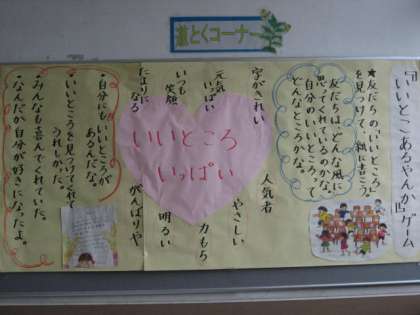 道とくコーナー
「いいとこあるやんか」ゲーム
★友だちの「いいところ」
を見つけて、紙に書こう。
友だちは、どんな風に
思ってくれているのかな。
自分の「いいところ」って
どんなところかな。
いいところ
いっぱい
字がきれい
元気いっぱい
いつも笑顔
たよりになる
人気者
やさしい
力もち
明るい
がんばりや
・自分にも「いいところ」が
あるんだな。
・「いいところ」を見つけてくれて
うれしかった。
・みんなも喜んでくれていた。
・なんだか自分が好きになったよ。